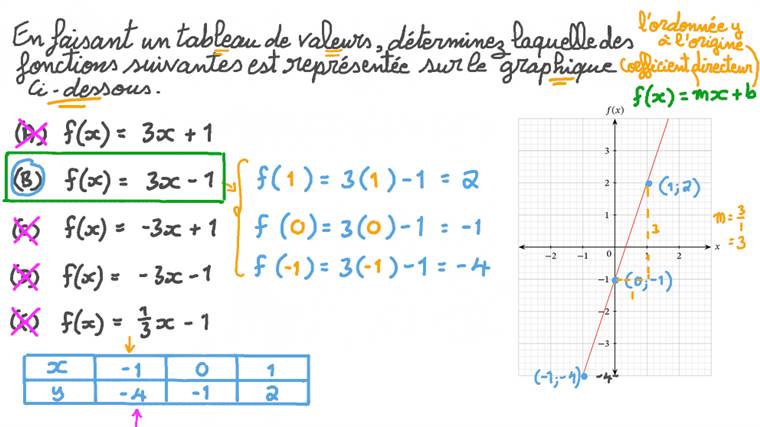 En faisant un tableau de valeurs, déterminez laquelle des
fonctions suivantes est représentée sur le graphique
ci-dessous.
l'ordonnée y
à l'origine
(coefficient directeur)
f(x) = mx + b
(A) f(x) = 3x + 1
(B) f(x) = 3x - 1
(C) f(x) = -3x + 1
(D) f(x) = -3x - 1
(E) f(x) = 1/3 x - 1
f(1) = 3(1) - 1 = 2
f(0) = 3(0) - 1 = -1
f(-1) = 3(-1) - 1 = -4
x -1 0 1
y -4 -1 2
f(x)
3
2
1
0
−1
−2
−3
-4
−2 −1 1 2 x
(1; 2)
(0; -1)
(-1; -4)
3
1
m = 3/1
= 3